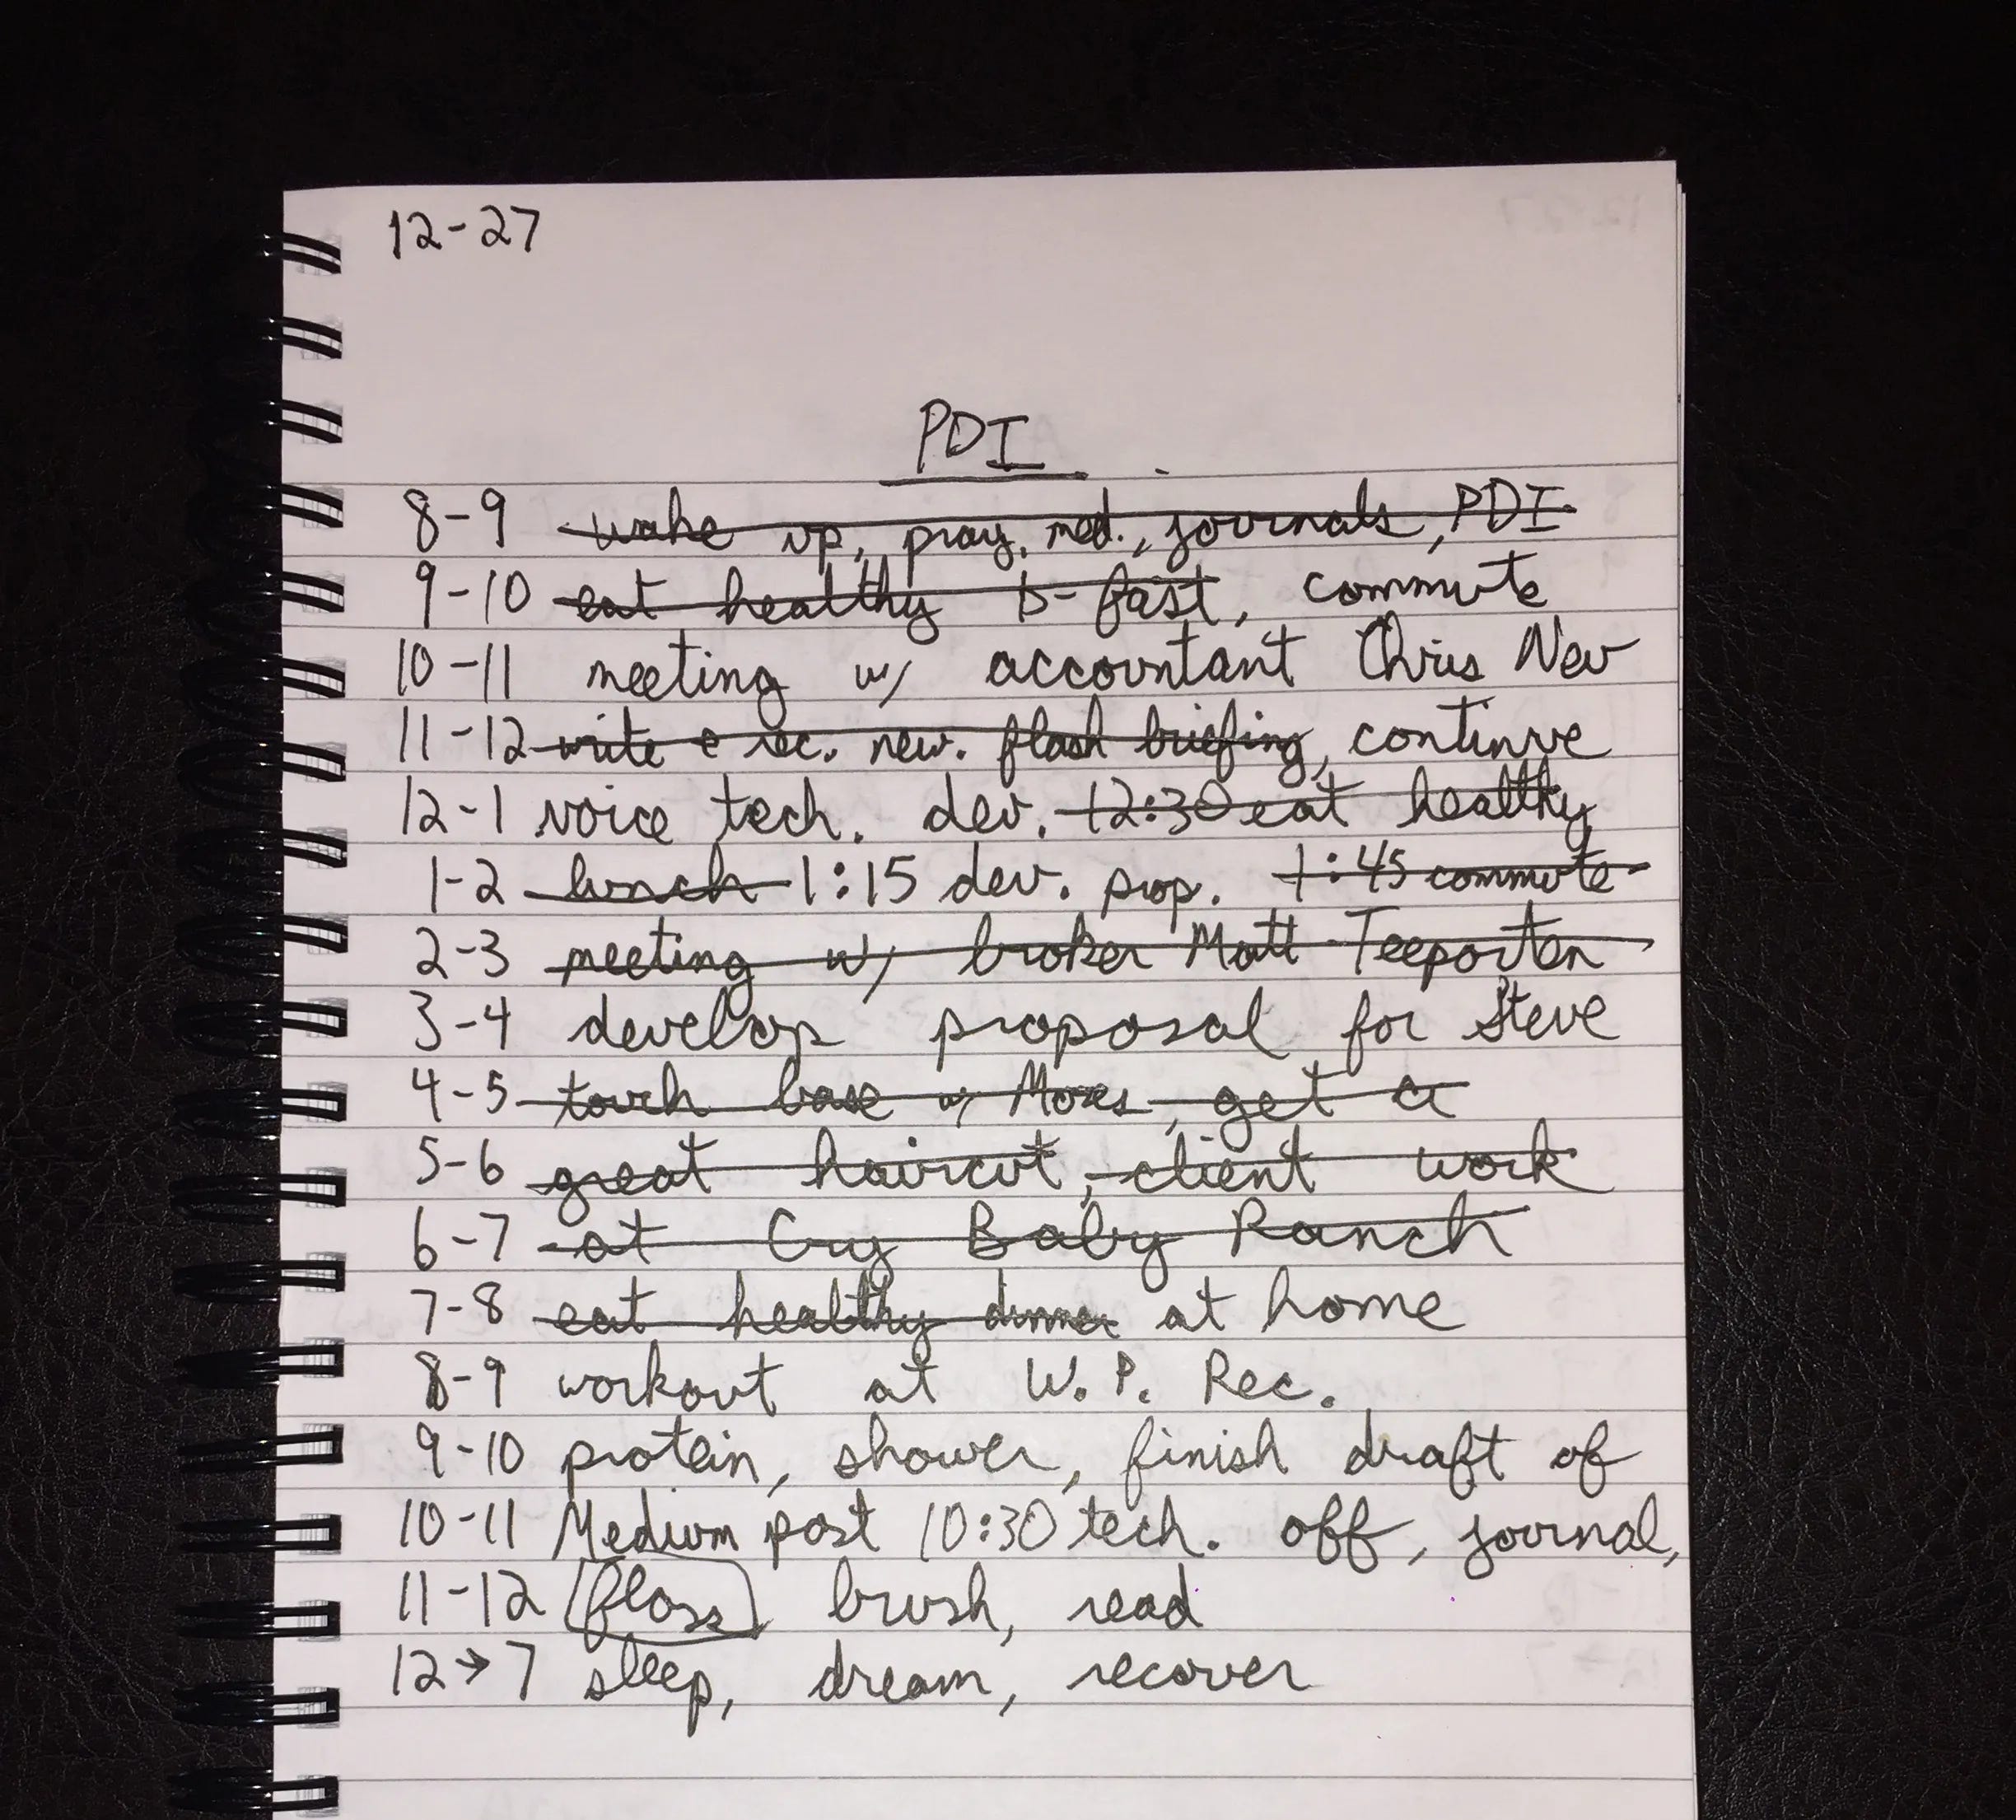 12-27
PDI
8-9 wake up, pray, med., journals, PDI
9-10 eat healthy b-fast, commute
10-11 meeting w/ accountant Chris Nev
11-12 write & rec. new. flash briefing, continue
12-1 voice tech. dev. 12:30 eat healthy
1-2 lunch 1:15 dev. prop. 1:45 commute
2-3 meeting w/ broker Matt Teeporten
3-4 develop proposal for Steve
4-5 touch base w/ get a
5-6 great haircut, client work
6-7 at Cry Baby Ranch
7-8 eat healthy dinner at home
8-9 workout at W. P. Rec.
9-10 protein, shower, finish draft of
10-11 Medium post 10:30 tech. off, journal,
11-12 floss brush, read
12→7 sleep, dream, recover